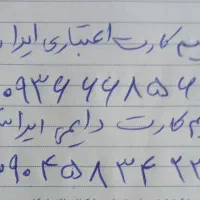 یم کارت اعتباری ایرا
۰۹۳۶۶۶۸۵۶
یم کارت دایمی ایرانس
۰۹۰۴۵۸۳۴۲۳